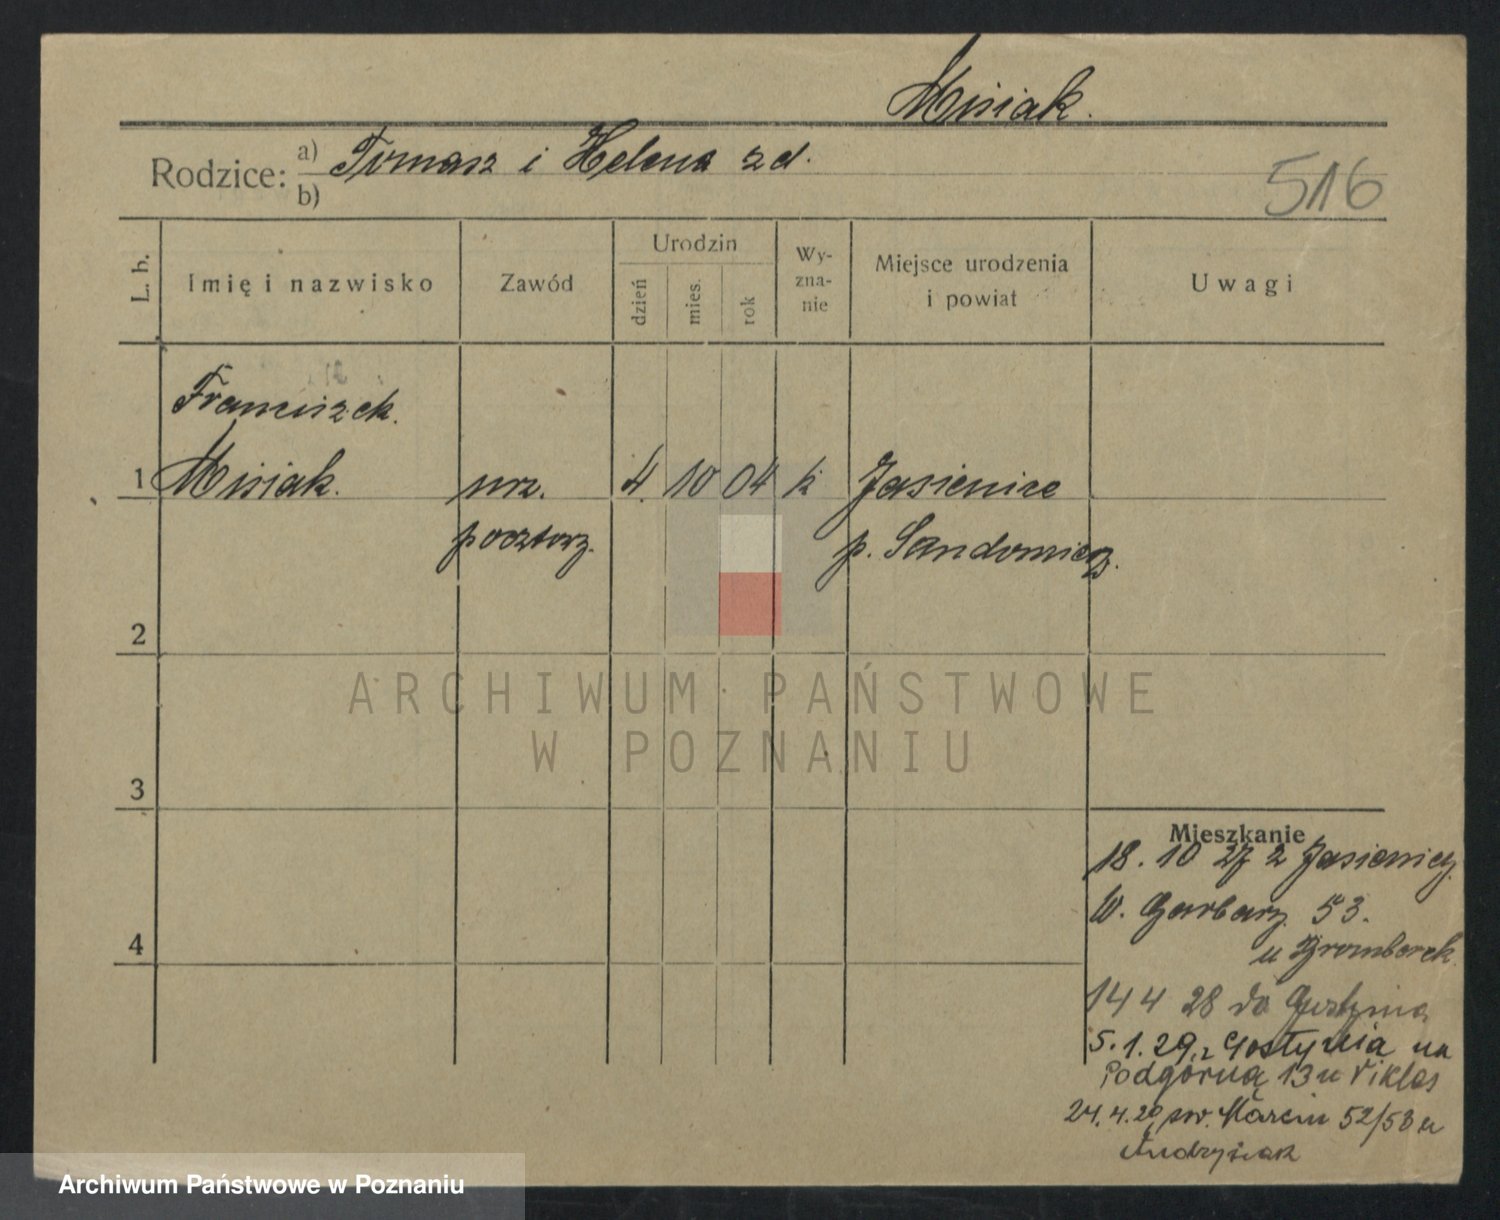 Misiak.
Rodzice: a) Tomasz i Helena zd.
b)
516
L. b.
Imię i nazwisko
Zawód
Urodzin
dzień
mies.
rok
Wy-
zna-
nie
Miejsce urodzenia
i powiat
Uwagi
Franciszek.
1 Misiak. urz. 4. 10 04 k Jasienice
pocztow. p. Sandomierz.
2
3
4
ARCHIWUM PAŃSTWOWE
W POZNANIU
Mieszkanie
18. 10 27 z Jasienicy
W. Garbary 53.
u
14 4 28 do Gostynia
5.1.29. z Gostynia na
Podgórną 13 u Viklas
24.4.29 św. Marcin 52/53 u
Andrzejak
Archiwum Państwowe w Poznaniu